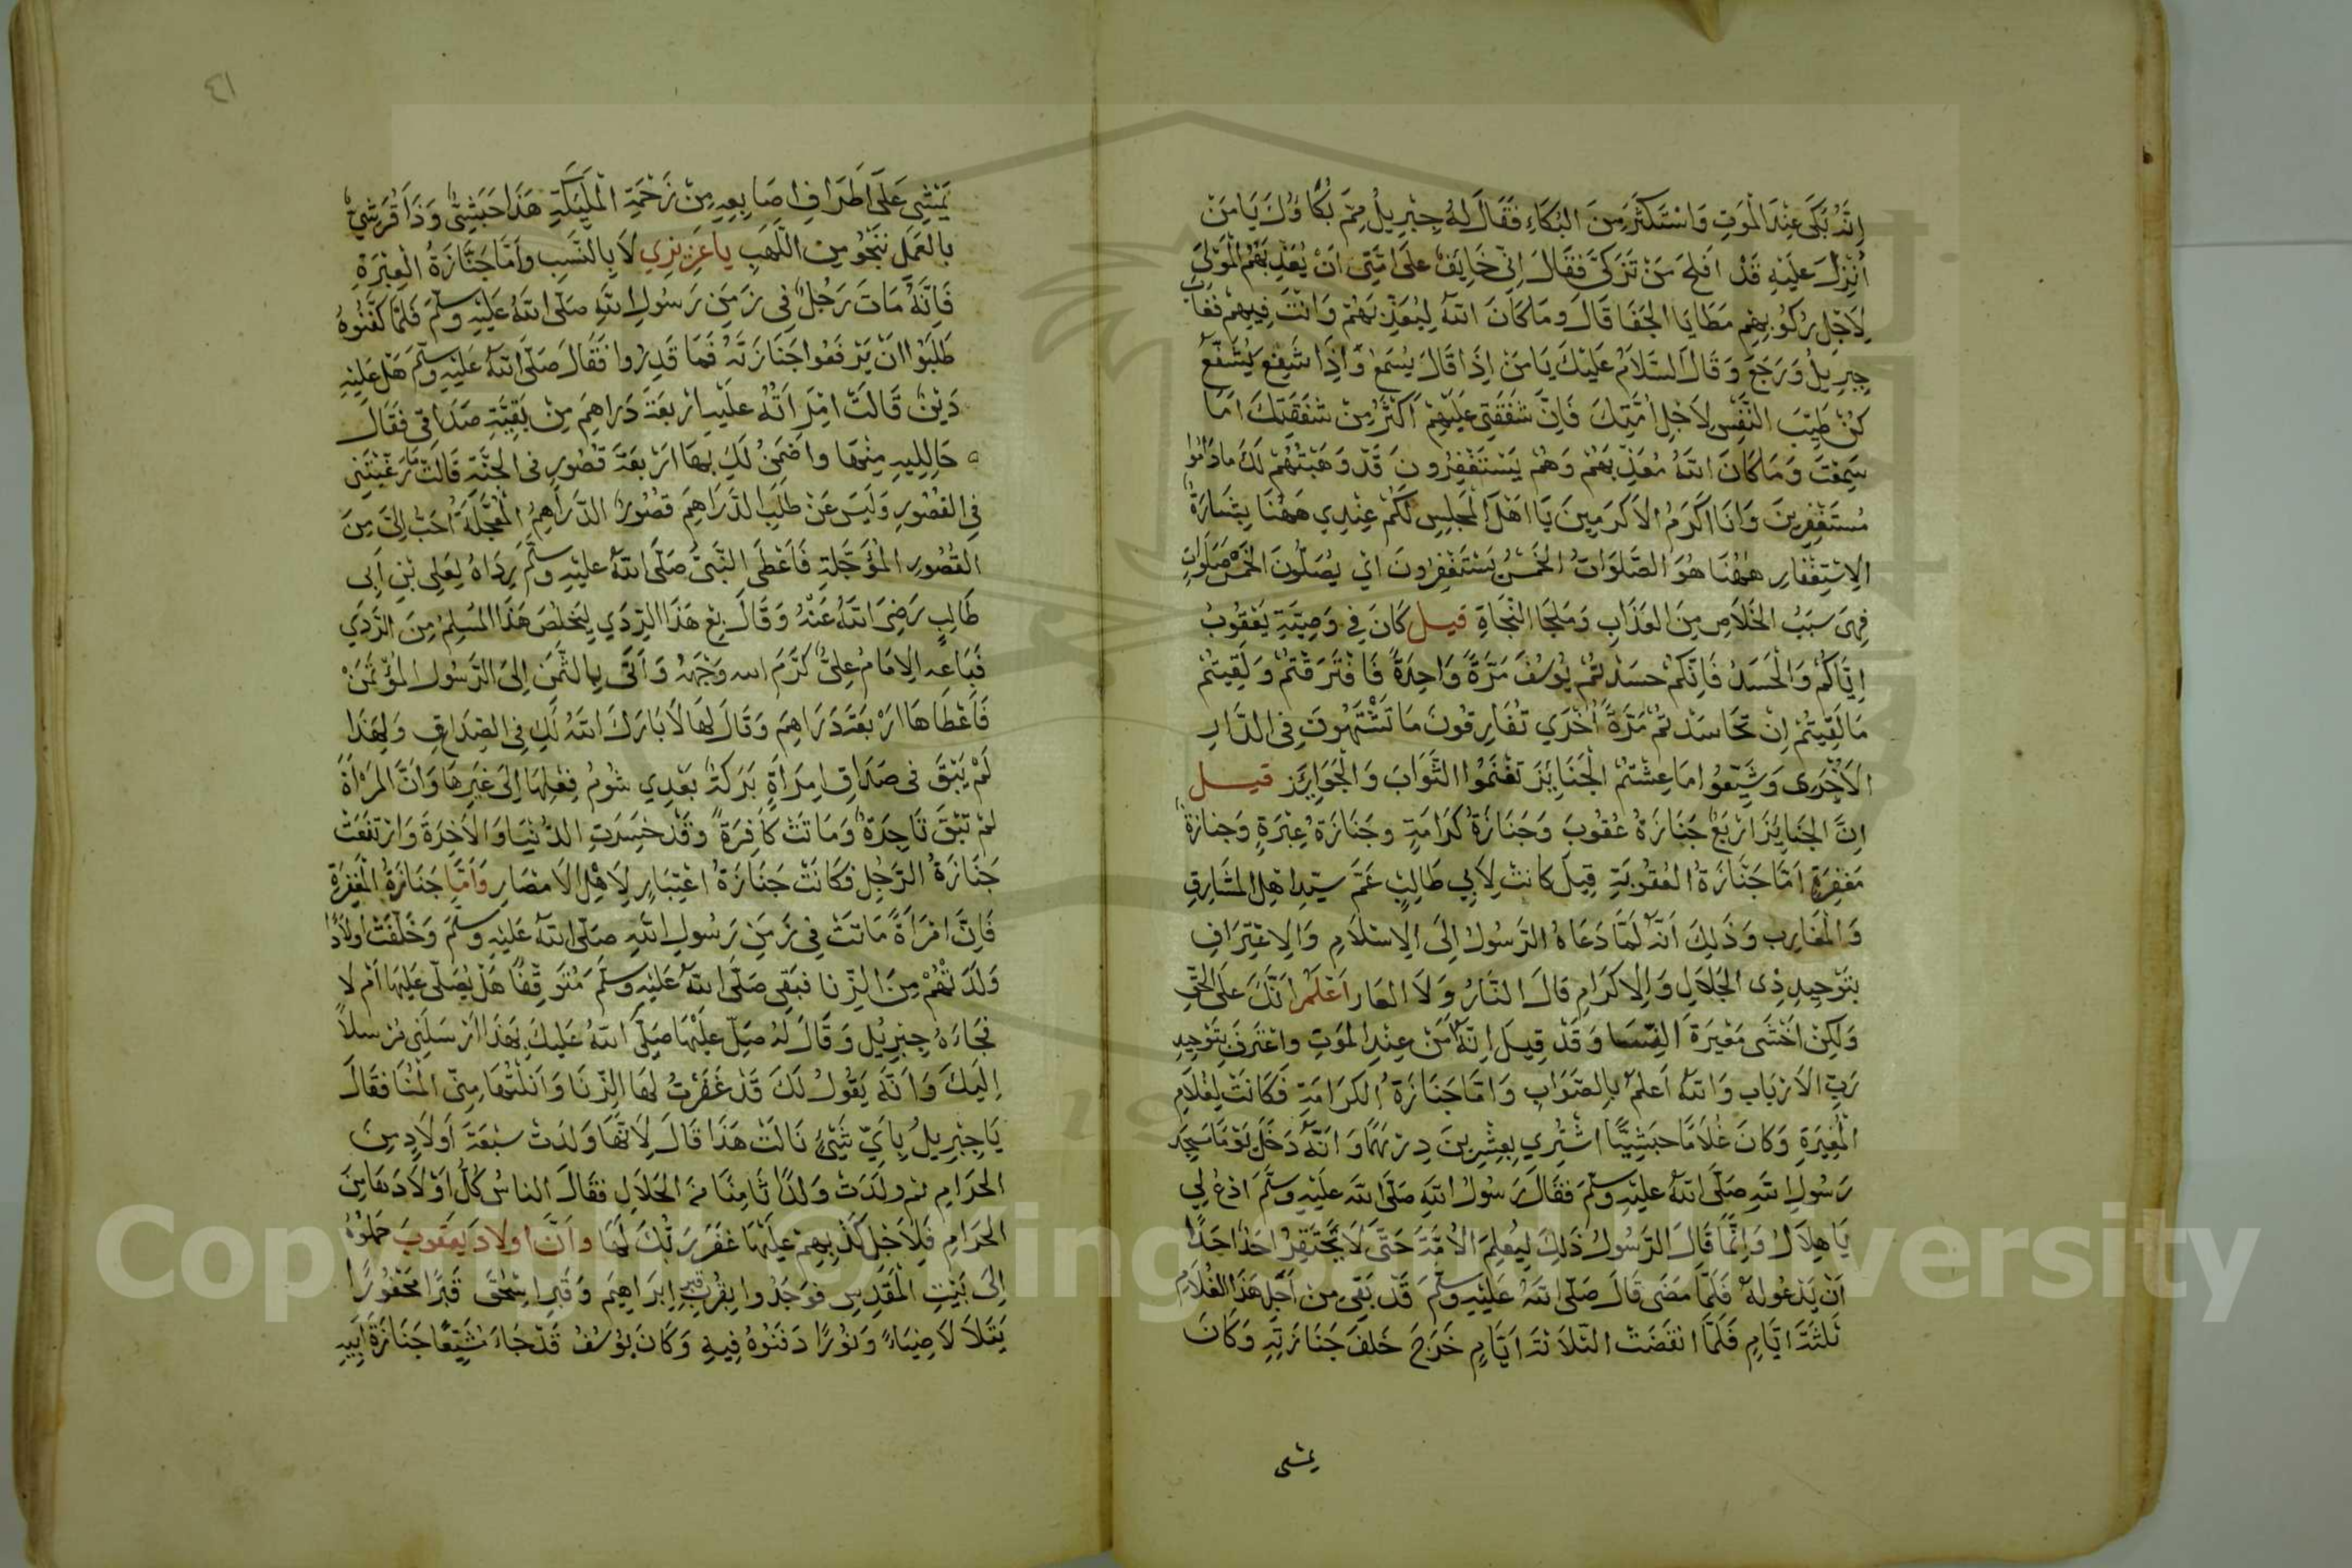 اِنَّهُ بَكَى عِنْدَ الْمَوْتِ وَاسْتَكْثَرَ مِنَ البُكَاءِ فَقَالَ لهُ جِبْرِيلُ مِمَّ بُكَاؤُكَ يَا مَنْ
اُنْزِلَ عَلَيْهِ قَدْ اَفلَحَ مَنْ تَزَكَّى فَقَالَ اِنِّي خَايِفٌ عَلَى اُمَّتِى اَنْ يُعَذِّبَهُمُ الْمَوْلَى
لِاَجْلِ رُكُوبِهِمْ مَطَايَا الجَفَا قَالَ وَمَا كَانَ اللهُ لِيُعَذِّبَهُمْ وَاَنْتَ فِيهِمْ فَغَابَ
جِبْرِيلُ وَرَجَعَ وَقَالَ السَّلَامُ عَلَيْكَ يَا مَنْ اِذَا قَالَ يُسْمَعْ وَاِذَا شَفَعَ يُشَفَّعْ
كُنْ طَيِّبَ النَّفْسِ لِاَجْلِ اُمَّتِكَ فَاِنَّ شَفَقَتِى عَلَيْهِمْ اَكْثَرُ مِنْ شَفَقَتِكَ اَمَا
سَمِعْتَ وَمَا كَانَ اللهُ مُعَذِّبَهُمْ وَهُمْ يَسْتَغْفِرُونَ قَدْ وَهَبْتُهُمْ لَكَ مَا دَامُوا
مُسْتَغْفِرِينَ وَانَا اَكْرَمُ الاَكْرَمِينَ يَا اَهْلَ الْمَجلِسِ لَكُمْ عِنْدِي هَهُنَا بِشَارَةٌ
الاِسْتِغْفَارِ هٰهُنَا هُوَ الصَّلَوَاتُ الخَمْسُ يَسْتَغْفِرُونَ اَيْ يُصَلُّونَ الخَمْسَ صَلَوَاتٍ
فَهِىَ سَبَبُ الخَلَاصِ مِنَ العَذَابِ وَمَلجَا النَّجَاةِ قيل كَانَ فِي وَصِيَّةِ يَعْقُوبُ
اِيَّاكُمْ وَالْحَسَدُ فَاِنَّكُمْ حسَدْتُمْ يُوسُفَ مَرَّةً وَاحِدَةً فَافْتَرَقتُمْ وَلَقِيتُمْ
مَا لَقِيتُمْ اِنْ تَحَاسَدْتُمْ مَرَّةً اُخْرَي تُفَارِقُونَ مَا تَشْتَهُونَ فِى الدَّارِ
الاُخْرى وَشَيِّعُوا مَا عِشْتُمْ الْجَنَايِزَ تَغْنَمُوا الثَّوَابَ وَالْجَوَايِزَ قيل
اِنَّ الجَنَايِزَ اَرْبَعٌ جَنَازَةُ عُقُوبَة وَجَنَازَةُ كَرَامَةٍ وجَنَازَةُ عِبْرَةٍ وَجنازة
مَغفِرَةٍ اَمَّا جَنَازَةُ العُقُوبَةِ قِيلَ كانتْ لِاَبِي طَالِبٍ عَمِّ سيّد اهْلِ المشَارِقِ
وَالْمَغَارِبِ وَذَلِكَ اَنَّهُ لَمَّا دَعَاهُ الرَّسُولُ اِلَى الاِسْلَامِ وَالاِعْتِرَافِ
بِتَوْحِيدِ ذِى الجَلَالِ وَالاِكرَامِ قالَ النَّارُ وَلَا العَار اَعْلَمُ اَنَّكَ عَلَى الحَقِّ
وَلَكِنْ اَخْشَى مَعْيَرَةَ النِّسَا وَقَدْ قِيلَ اِنَّهُ آمَنَ عِنْدِ المَوْتِ وَاعْتَرَفَ بِتَوْحِيدِ
رَبِّ الاَرْبَاب وَاللهُ اَعلمُ بِالصَّوَابِ وَاَمَّا جَنَازَةُ الكَرَامَةِ فَكَانَتْ لِغُلَامِ
الْمُغِيرَةِ وَكَانَ غُلَامًا حبَشِيًّا اشْتُرِي بِعِشْرِينَ دِرْهَمًا وَاَنَّهُ دَخَلَ يَوْمًا مَسجِد
رَسُولِ اللهِ صَلَّى اللهُ عَليْهِ وسَلَّمَ فَقَالَ رَسُولُ اللهِ صَلَّى اللهُ عَلَيْهِ وسَلَّمَ ادْعُ لِي
يَا هِلَالُ وَاِنَّمَا قَالَ الرَّسُولُ ذَلِكَ لِيُعلِمَ الاُمَّةَ حَتَّى لَا يَحْتَقِرُ احَدٌ اَحَدًا
اَنْ يَدْعُو لهُ فَلَمَّا مَضَى قَالَ صَلَّى اللهُ عَلَيْهِ وسَلَّمَ قَدْ بَقِيَ مِنْ اَجَلِ هَذَا الغُلَامُ
ثَلٰثَةُ اَيَّامٍ فَلَمَّا انْقَضَتْ الثَّلَاثَةُ اَيَّامٍ خَرَجَ خَلفَ جَنَازَتِهِ وَكَانَ
يمشى
٤١
يَمْشِي عَلَى اَطْرَافِ اصَابِعِهِ مِنْ زَحْمَةِ الْمَلَيِكَةِ هَذَا حَبَشِيٌّ وَذَا قُرَشِيٌّ
بِالعَمَلِ نَنْجُو مِنَ اللَّهَبِ يا عَزِيزِي لَا بِالنَّسَبِ وَاَمَّا جَنَازَةُ العِبْرَةِ
فَاِنَّهُ مَاتَ رَجُلٌ فِي زَمَنِ رَسُولِ اللهِ صَلَّى اللهُ عَلَيْهِ وسَلَّمَ فَلَمَّا كَفَّنُوهُ
طَلَبُوا انْ يَرْفَعُوا جَنَازَتَهُ فَمَا قَدِرُوا فَقَالَ صَلَّى اللهُ عَلَيْهِ وسَلَّمَ هَلْ عَلَيْهِ
دَيْنٌ قَالَتْ امْرَاَتُهُ عَلَيْهِ اَرْبعَةُ دَرَاهِمَ مِنْ بَقِيَّةِ صَدَاقِى فَقَالَ
حَالِلِيهِ مِنْهَا واَضْمَنُ لَكِ بِهَا اَرْبعَةَ قُصُورٍ فِى الجَنَّةِ قَالَتْ مَا رَغْبَتِي
فِي القُصُورِ وَلَيْسَ عَنْ طَلَبِ الدَّرَاهِمَ قصُورٌ الدَّرَاهِمُ الْمُعَجَّلَةُ اَحَبُّ اِلَيَّ مِنَ
القُصُورِ المُؤَجَّلَةِ فَاَعْطَى النَّبِىُّ صَلَّى اللهُ عَليْهِ وسَلَّمَ رِدَاهُ لِعَلِى بْنِ اَبِى
طَالِبٍ رَضِىَ اللهُ عَنْهُ وَقَالَ بِعْ هَذَا الرِّدَي لِيَخلُصَ هَذَا المُسلِمُ مِنَ الرَّدَي
فَبَاعه الاِمَامُ عَلِىٌّ كَرَّمَ الله وَجْهَهُ وَاَتَى بِالثَّمَنِ اِلَى الرَّسُولِ المُؤْتَمَنْ
فَاَعْطَاهَا ارْبعَةَ دَرَاهِمَ وَقَالَ لهَا لَا بَارَكَ اللهُ لَكِ فِي الصِّدَاقِ وَلِهَذَا
لَمْ يَبْقَ فِى صَدَاقِ امْرَاَةٍ بَرَكَةٌ بَعْدِي شُومُ فِعْلِهَا اِلَى غَيْرِهَا وَاَنَّ المَرْاَةَ
لمْ تَبْقَ ثَاحِدَةٌ وَمَاتَتْ كاَفِرَةً وقَدْ خسَرَتِ الدُّنْيَا وَالاَخِرَةَ وَارْتَفَعَتْ
جَنَازَةُ الرَّجُلِ فَكَانَتْ جَنَازَةُ اعْتِبَارٍ لِاَهْلِ الاَمْصَارِ وَاَمَّا جَنَازَةُ الْمَغْفِرَةِ
فَاِنَّ امْرَاَةً مَاتَتْ فِي زَمَنِ رَسُولِ اللهِ صَلَّى اللهُ عَلَيْهِ وسَلَّمَ وَخَلَّفَتْ اَولاَدًا
وَلَدَتْهُمْ مِنَ الزِّنا فبَقِىَ صَلَّى اللهُ عَلَيْهِ وسَلَّمَ مُتَوَقِّفًا هَلْ يُصَلِّى عَلَيْهَا اَمْ لَا
فجَاءَهُ جِبْرِيلُ وَقَالَ لهُ صَلِّ عَلَيْهَا صَلَّى اللهُ عَلَيْكَ بهَذَا اَرْسَلَنِى مُرْسلاً
اِلَيْكَ وَاَنَّهُ يَقُولُ لَكَ قَدْ غَفَرْتُ لهَا الزِّنَا وَاَنَلْتُهَا مِنِّى الْمُنَا فقَالَ
يَا جِبْرِيلُ بِاَيِّ شَيْئٍ نَالَتْ هَذَا قَالَ لِاَنَّهَا وَلدَتْ سَبْعَةَ اَولَادٍ مِنَ
الحَرَامِ ثم ولَدَتْ وَلَدًا ثَامِنًا مَنَ الحَلَالِ فقَالَ الناسُ كُلُّ اَوْلَادِهَا مِنَ
الحَرَامِ فَلِاَجْلِ كَذْبِهِمْ عَلَيْهَا غَفَرَ رَبُّكَ لَهَا وانَّ اولَادَ يَعقوبَ حَمَلُوْهُ
اِلَى بَيْتِ الْمَقْدِسِ فوَجَدُوا بِقُرْبِ قبر اِبْرَاهِيمَ وَقَبْرِ اِسْحٰقَ قَبْرًا مَحْفُورًا
يَتَلَالَا ضِيَاءً وَنُورًا دَفَنُوهُ فِيهِ وَكَانَ يُوسُفُ قَدْ جَاءَ مُشَيِّعًا جَنَازَةَ اَبِيهِ
Copyright © King Saud University